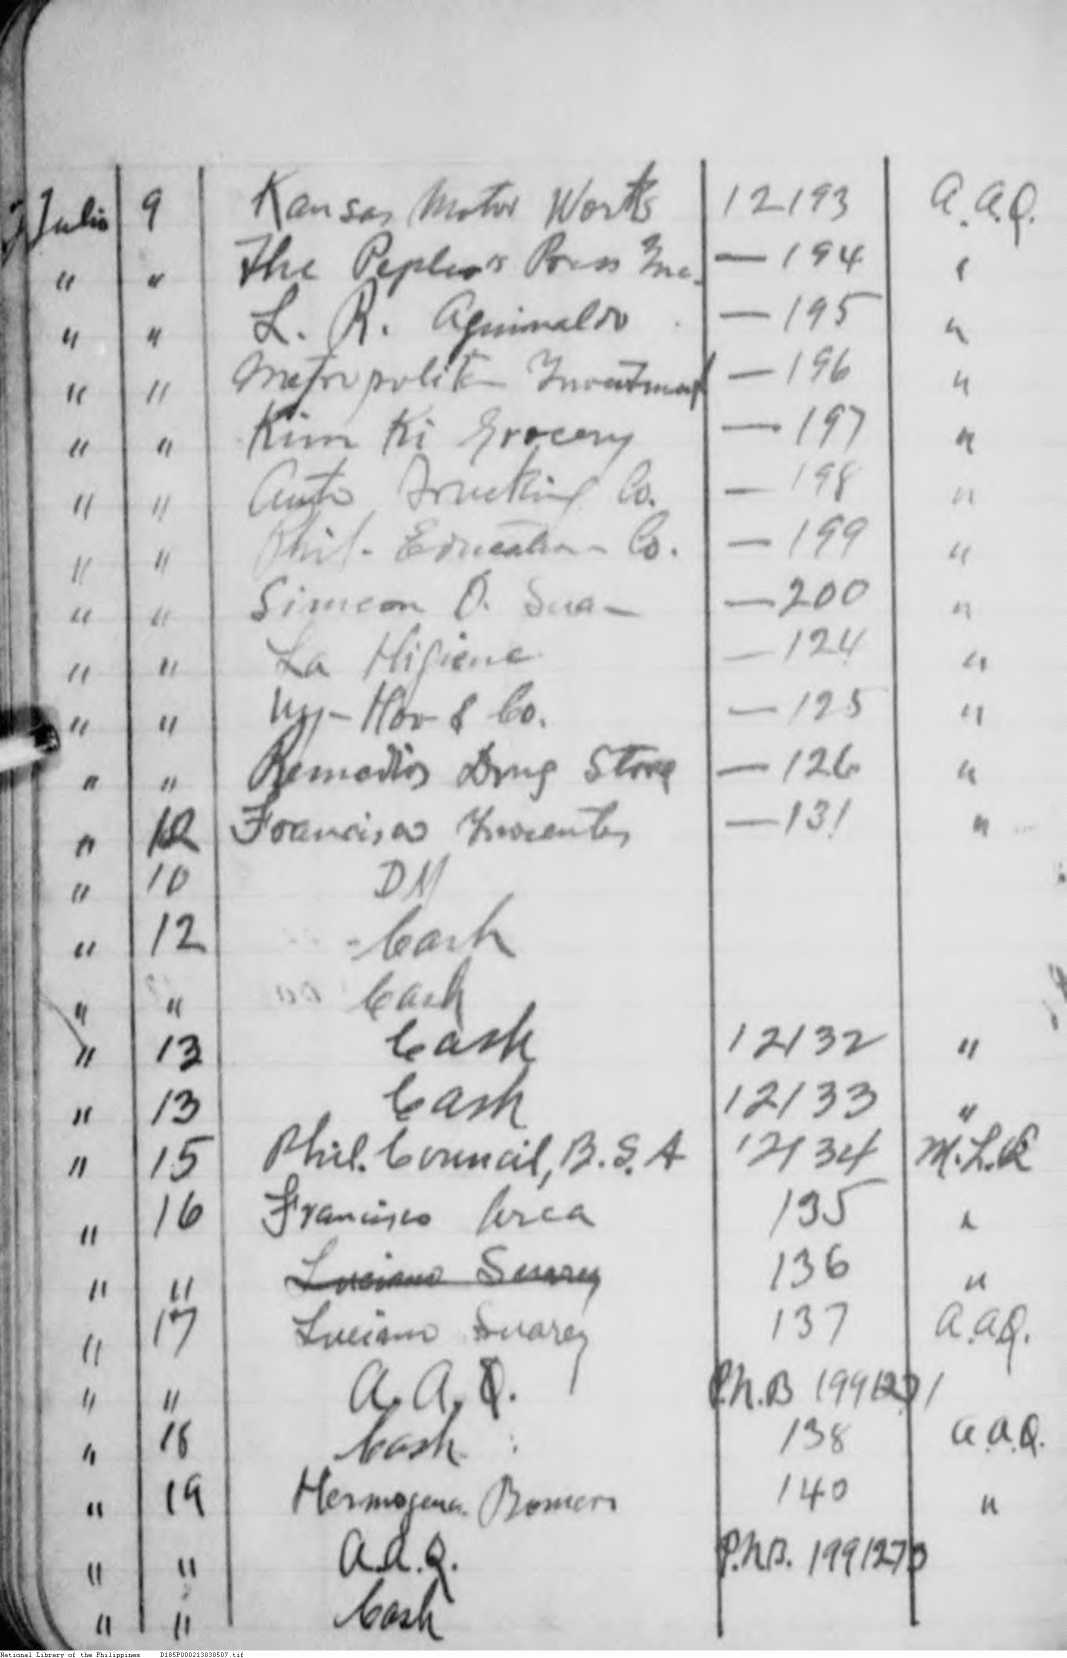 Julio 9 Kansas Motor Works 12193 A.A.Q.
" " The Peples Press Inc. — 194 "
" " L. R. Aguinaldo — 195 "
" " Metropolitan Investment — 196 "
" " Kim Ki Grocery — 197 "
" " Auto Trucking Co. — 198 "
" " Phil. Education Co. — 199 "
" " Simeon O. — 200 "
" " La Higiene — 124 "
" " Uy-Hoo & Co. — 125 "
" " Remedios Drug Store — 126 "
" 12 Francisco Inocentes — 131 "
" 10 DM
" 12 Cash
" " Cash
" 13 Cash 12132 "
" 13 Cash 12133 "
" 15 Phil. Council, B.S.A 12134 M.L.Q
" 16 Francisco Arca 135 "
" " Luciano Suarez 136 "
" 17 Luciano Suarez 137 A.A.Q.
" " A.A.Q. P.N.B 1991271
" 18 Cash 138 A.A.Q.
" 19 Hermogena Romero 140 "
" " A.A.Q. P.N.B. 1991273
" " Cash
National Library of the Philippines D185P000213838507.tif